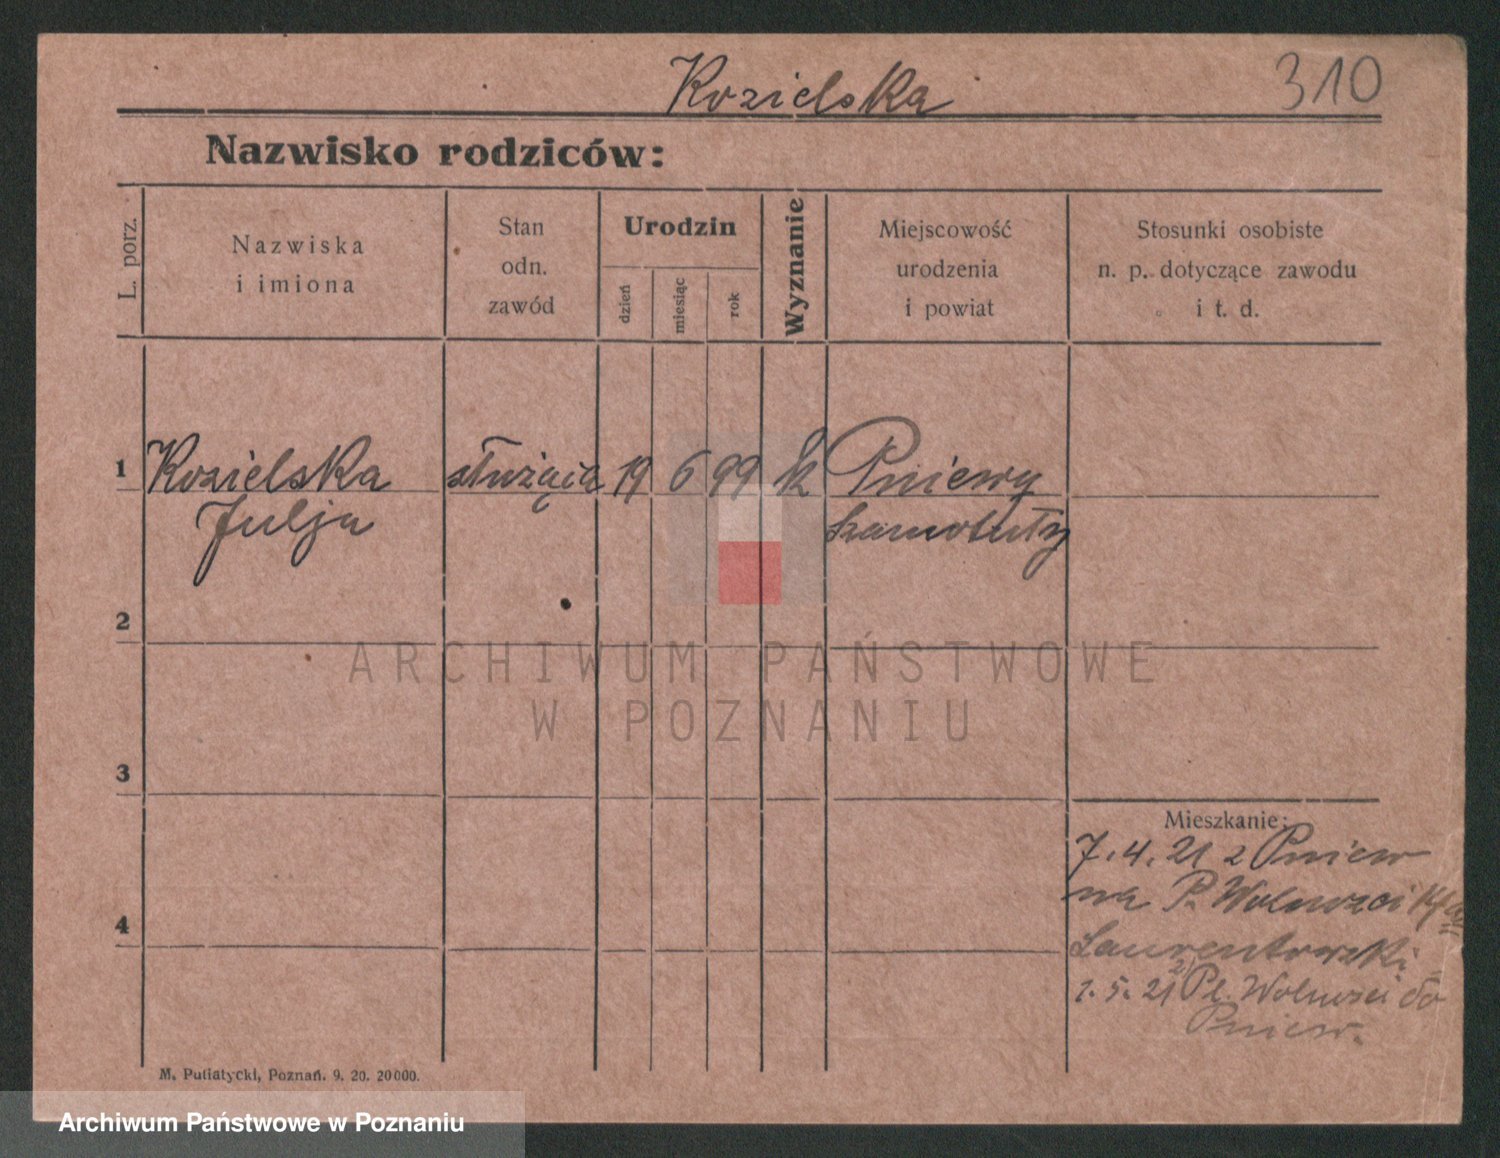 Kozielska
310
Nazwisko rodziców:
L. porz.
Nazwiska
i imiona
Stan
odn.
zawód
Urodzin
dzień
miesiąc
rok
Wyznanie
Miejscowość
urodzenia
i powiat
Stosunki osobiste
n. p. dotyczące zawodu
i t. d.
1
Kozielska służąca 19 6 99 k Pniewy
Julja Szamotuły
2
ARCHIWUM PAŃSTWOWE
W POZNANIU
3
Mieszkanie:
7.4.21 z Pniew
na P. Wolności
4
Laurentowski
1.5.21 z Pl. Wolności do
Pniew.
M. Putiatycki, Poznań. 9. 20. 20000.
Archiwum Państwowe w Poznaniu